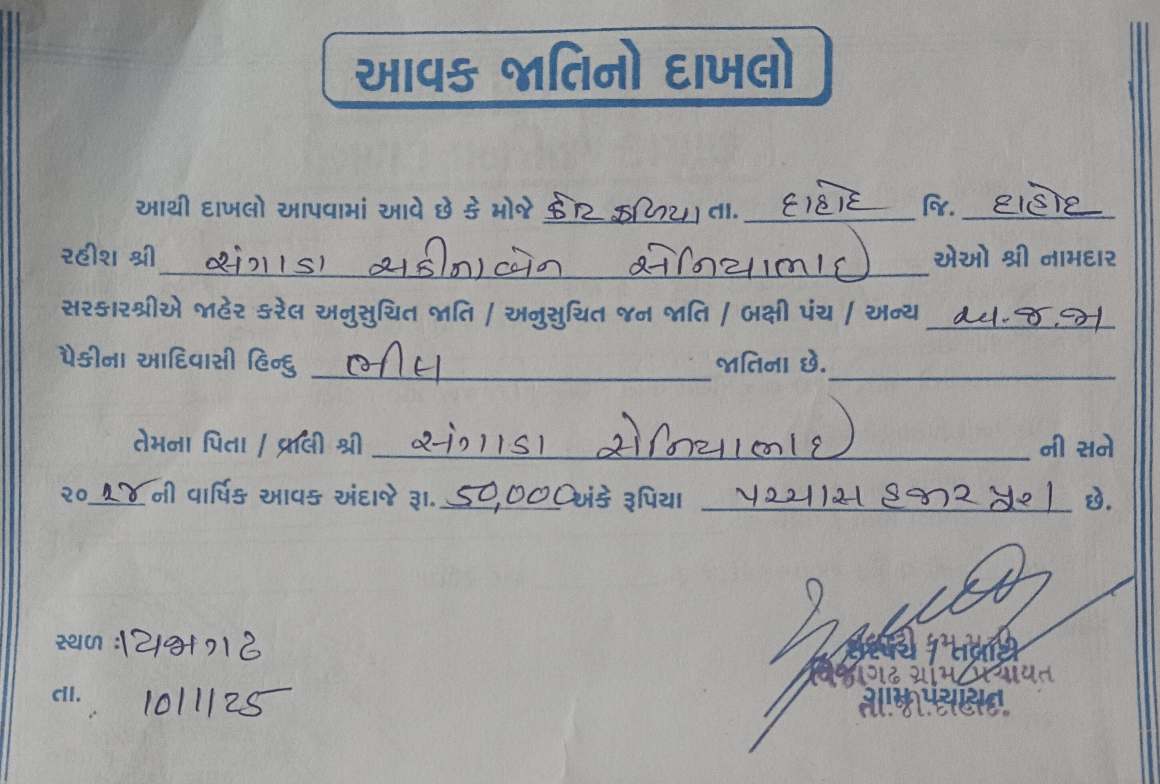 આવક જાતિનો દાખલો
આથી દાખલો આપવામાં આવે છે કે મોજે કોટ ફળિયા તા. દાહોદ જિ. દાહોદ
રહીશ શ્રી સંગાડા સકીનાબેન સેનિયાભાઈ એઓ શ્રી નામદાર
સરકારશ્રીએ જાહેર કરેલ અનુસુચિત જાતિ / અનુસુચિત જન જાતિ / બક્ષી પંચ / અન્ય અ.જ.જા
પૈકીના આદિવાસી હિન્દુ ભીલ જાતિના છે.
તેમના પિતા / વાલી શ્રી સંગાડા સેનિયાભાઈ ની સને
૨૦૨૪ ની વાર્ષિક આવક અંદાજે રૂા. 50,000 અંકે રૂપિયા પચ્ચાસ હજાર પુરા છે.
સ્થળ :
તા. 10/1/25
સરપંચ / તલાટી
વિજાગઢ ગ્રામ પંચાયત
ગ્રામ પંચાયત
તા.જી.દાહોદ.